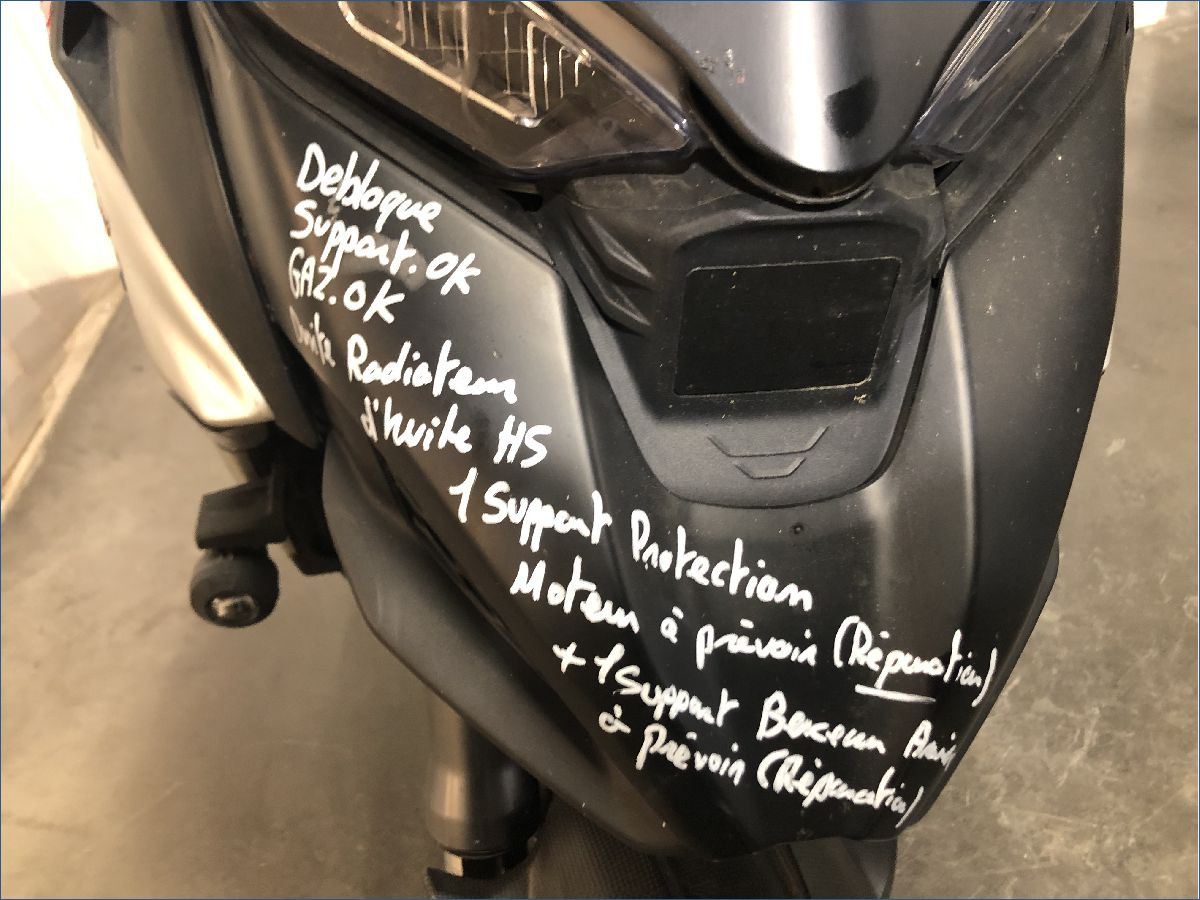 Debloque
Support.OK
GAZ.OK
Durite Radiateur
d'huile HS
1 Support Protection
Moteur à prévoir (Réparation)
+ 1 Support Berceau Arrière
à prévoir (Réparation)